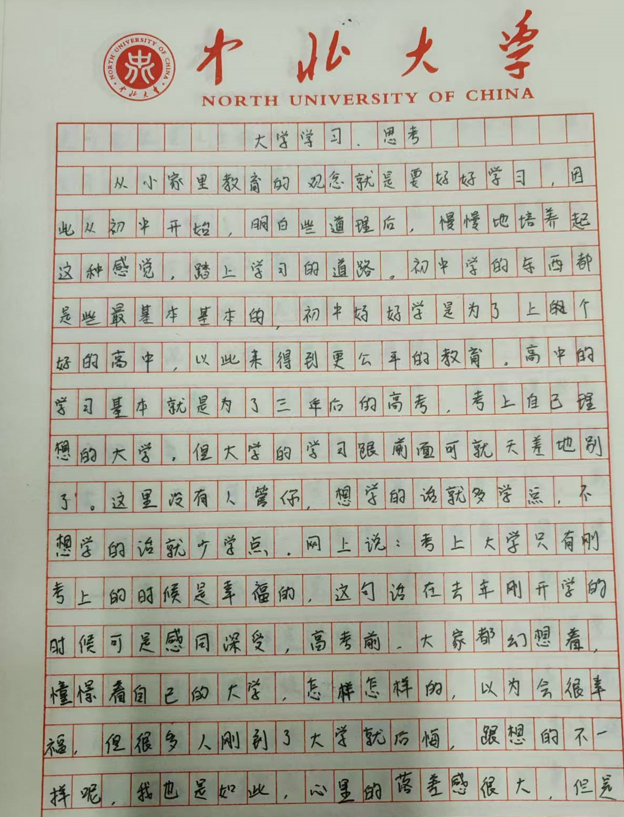 中北大学
NORTH UNIVERSITY OF CHINA
大学学习、思考
从小家里教育的观念就是要好好学习，因
此从初中开始，明白些道理后，慢慢地培养起
这种感觉，踏上学习的道路。初中学的东西都
是些最基本基本的，初中好好学是为了上个
好的高中，以此来得到更公平的教育。高中的
学习基本就是为了三年后的高考，考上自己理
想的大学。但大学的学习跟前面可就天差地别
了。这里没有人管你，想学的话就多学点，不
想学的话就少学点。网上说：考上大学只有刚
考上的时候是幸福的，这句话在去年刚开学的
时候可是感同深受，高考前，大家都幻想着，
憧憬着自己的大学，怎样怎样的，以为会很幸
福，但很多人刚到了大学就后悔，跟想的不一
样呢，我也是如此，心里的落差感很大，但是